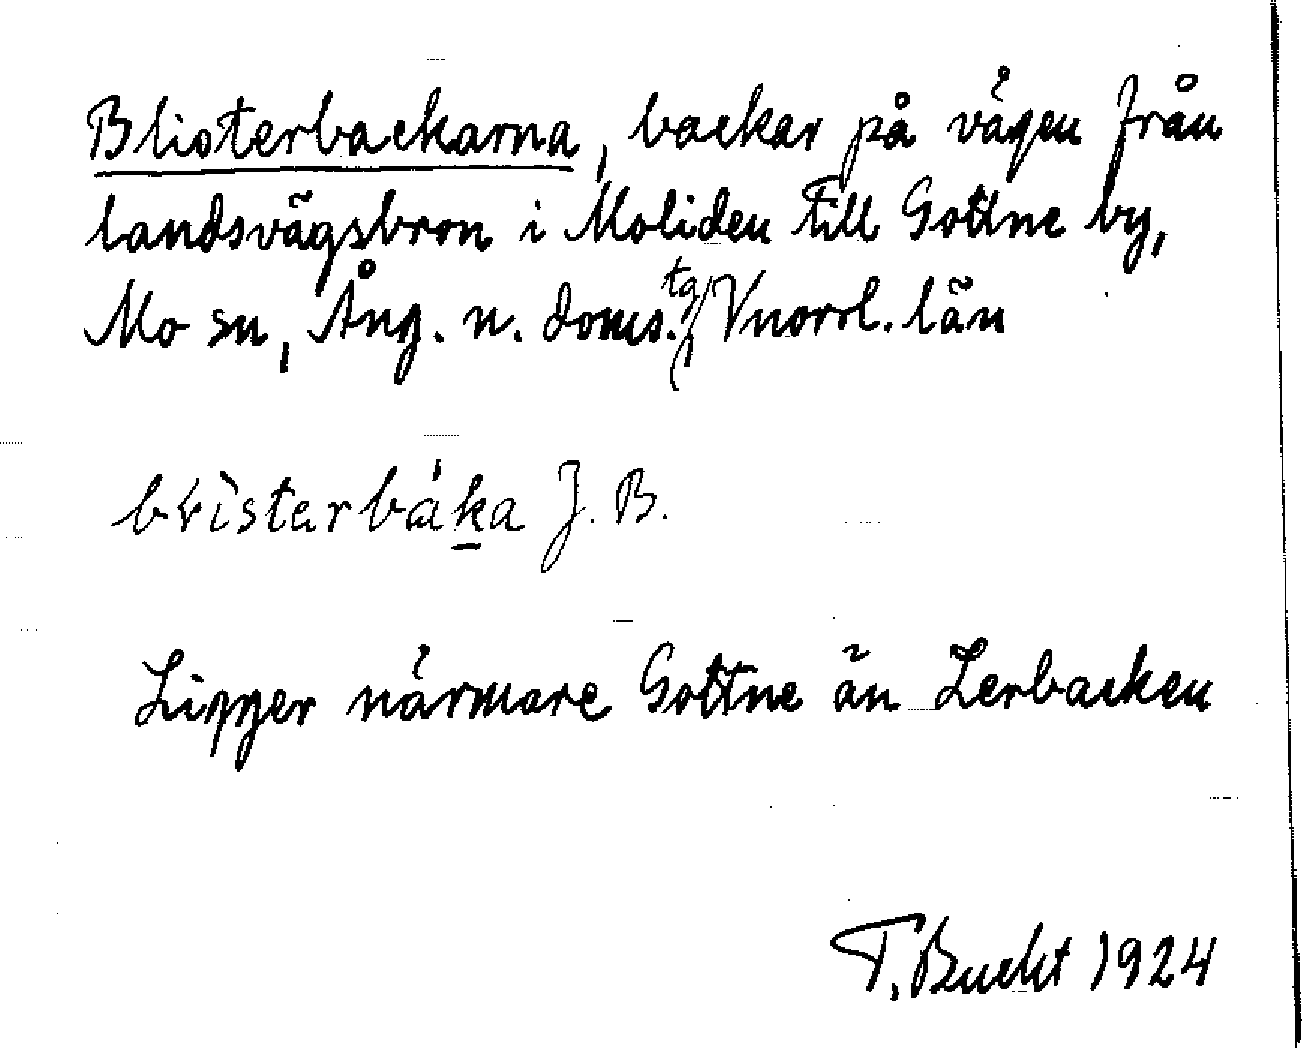 Blisterbackarna, backar på vägen från
landsvägsbron i Moliden till Gottne by,
Mo sn, Ång. n. doms.tg, Vnorrl. län
J. B.
Ligger närmare Gottne än Lerbacken
T. Bucht 1924